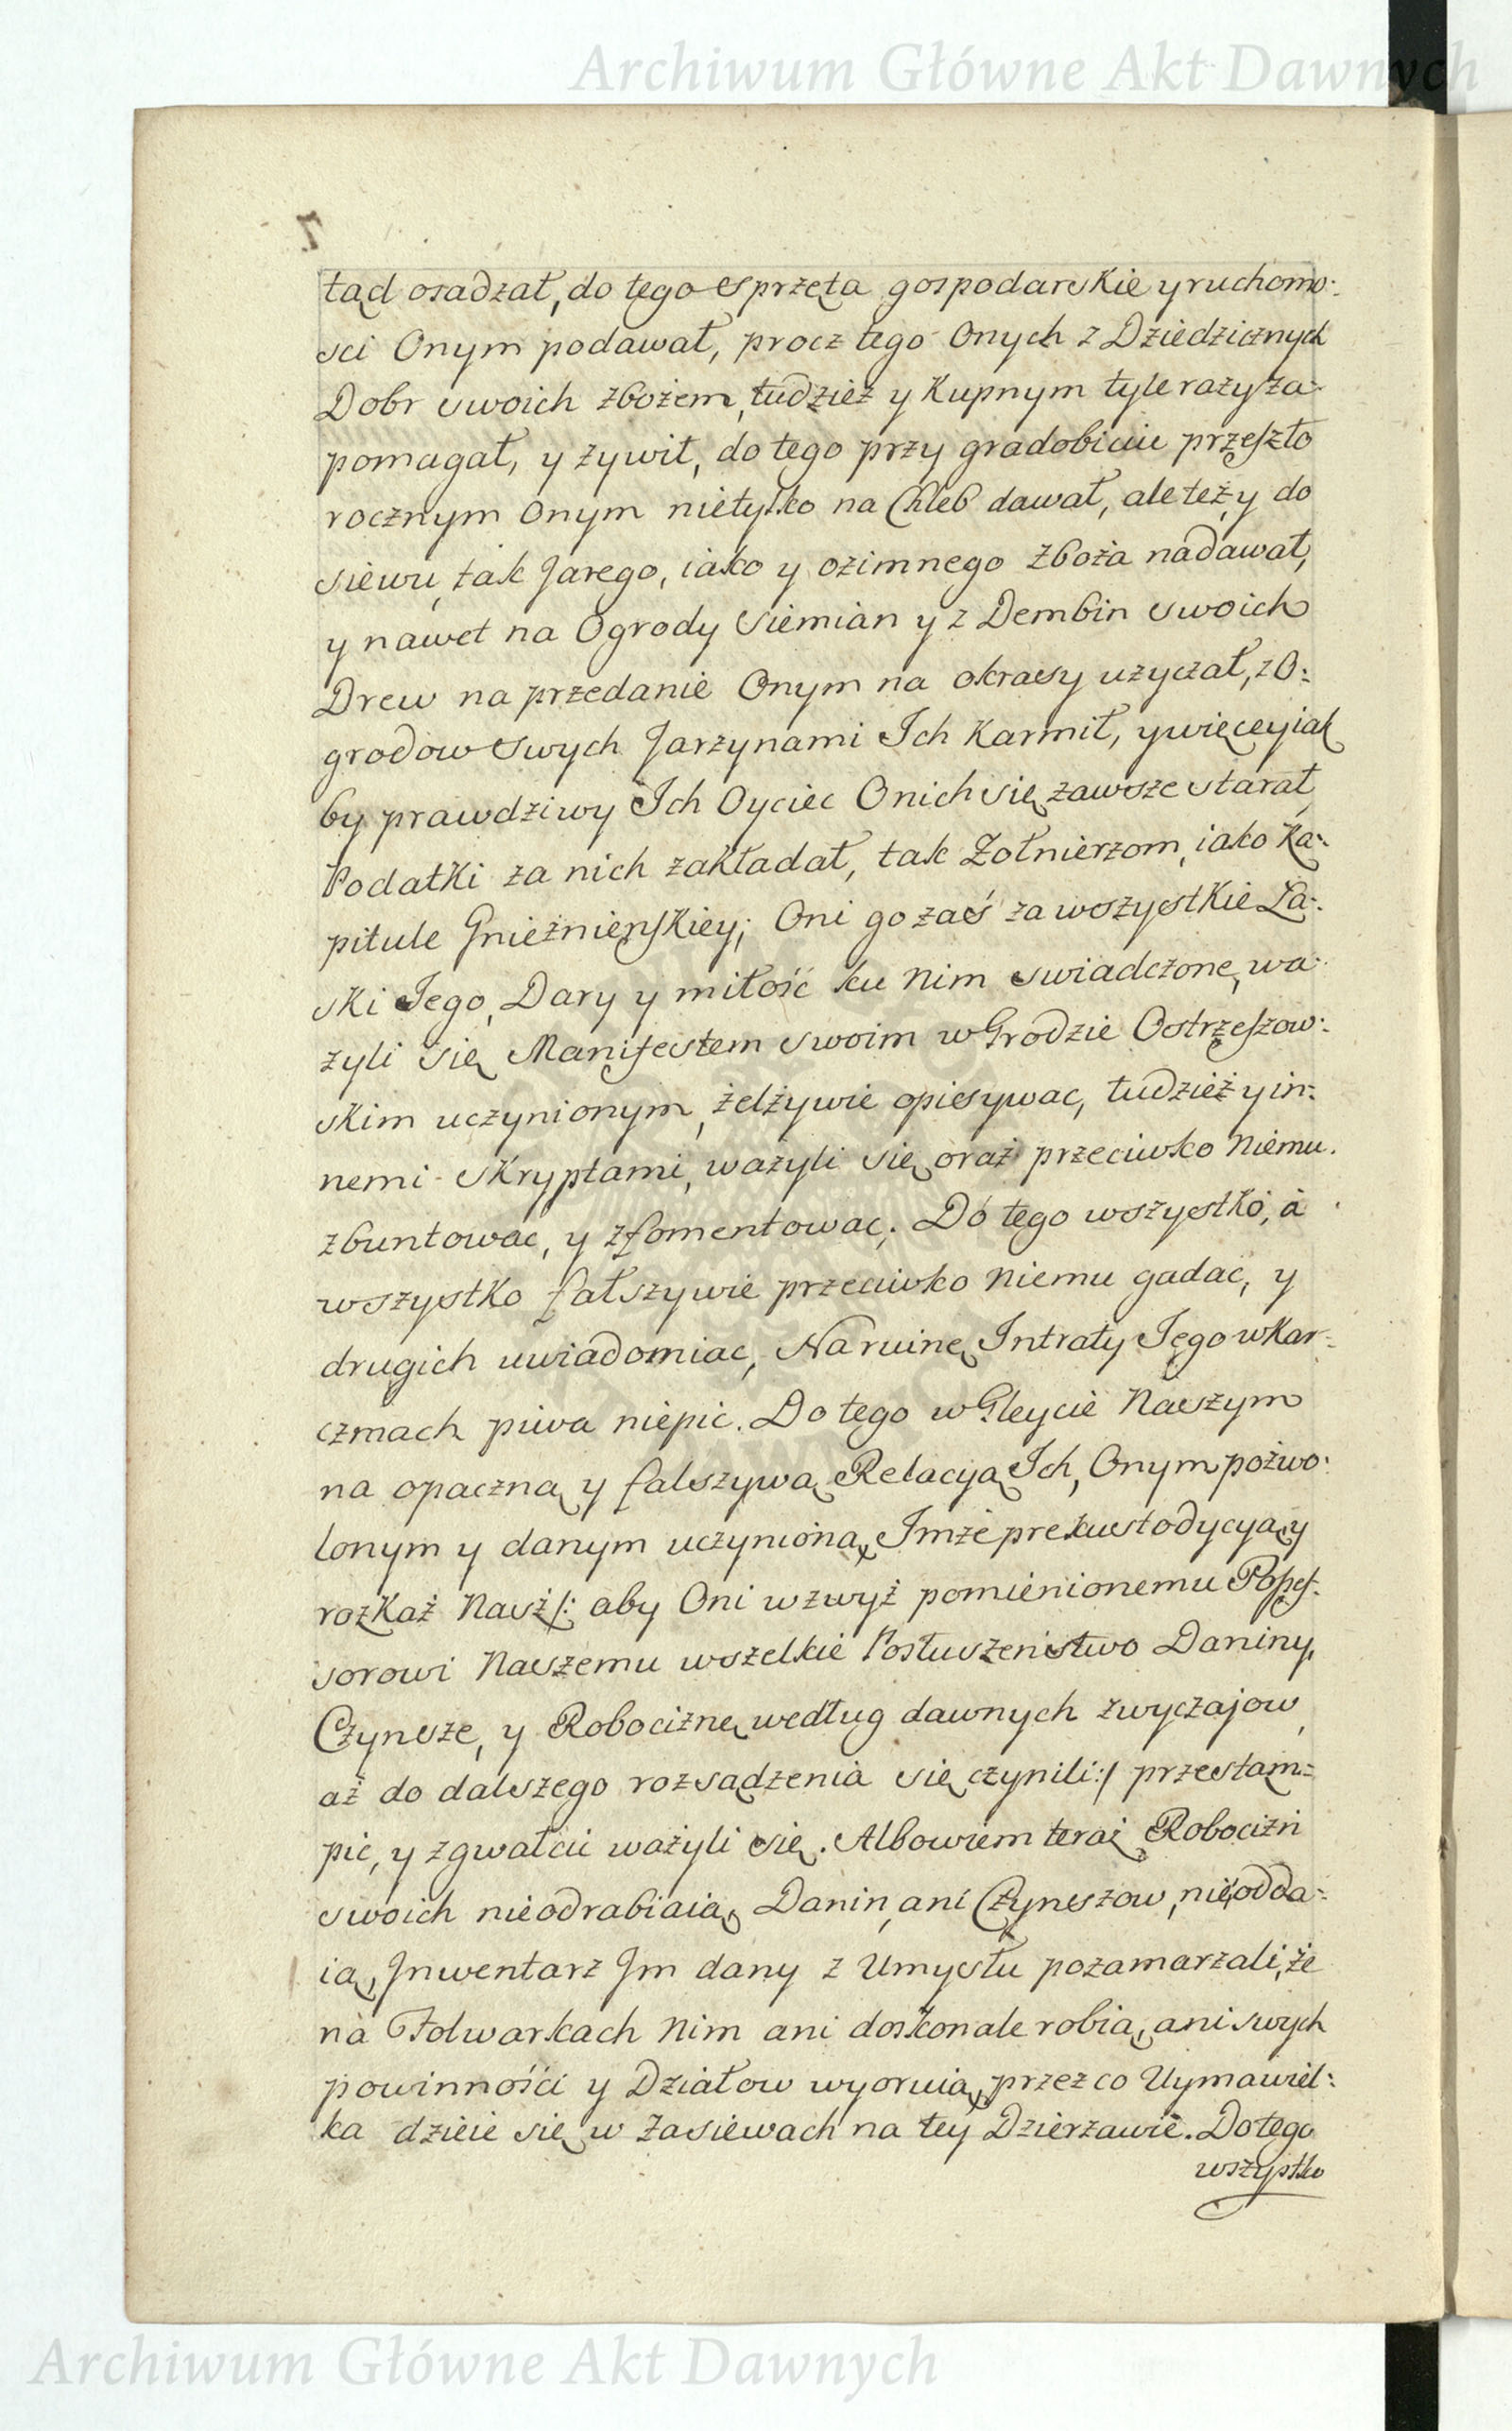 Archiwum Główne Akt Dawnych
7
tąd osadzał, do tego sprzęta gospodarskie y ruchomo:
sci Onym podawał, procz tego Onych z Dziedzicznych
Dobr swoich zbożem, tudzież y Kupnym tyle razy za:
pomagał, y żywił, do tego przy gradobiciu przeszło
rocznym Onym nietylko na Chleb dawał, ale też y do
siewu, tak Jarego, iako y ozimnego zboża nadawał,
y nawet na Ogrody Siemian y z Dembin swoich
Drew na przedanie Onym na okrasy użyczał, z O:
grodow swych Jarzynami Ich Karmił, y więcey iak
by prawdziwy Ich Oyciec O nich się zawsze starał,
Podatki za nich zakładał, tak Żołnierzom, iako Ka:
pitule Gnieźnienskiey; Oni go zaś za wszystkie Ła:
ski Jego, Dary y miłość ku Nim swiadczone, wa:
żyli się Manifestem swoim w Grodzie Ostrzeszow:
skim uczynionym, żelżywie opisywac, tudzież y in:
nemi skryptami, ważyli się oraż przeciwko Niemu
zbuntowac, y zfomentowac; Do tego wszystko, a
wszystko fałszywie przeciwko Niemu gadać, y
drugich uwiadomiac, Na ruinę Intraty Jego w Kar:
czmach piwa niepic. Do tego w Gleycie Naszym
na opaczną y falszywą Relacyą Ich, Onym pozwo:
lonym y danym uczynioną, Imże prekustodycyą y
rozkaż Nasż /: aby Oni wzwyż pomienionemu Posses:
sorowi Naszemu wszelkie Posłuszenistwo Daniny,
Czynsze, y Robociznę według dawnych zwyczajow,
aż do dalszego rozsądzenia się czynili :/ przestąm:
pic, y zgwałcic ważyli się. Albowiem teraż Robocizn
swoich nieodrabiaią, Danin, ani Czynszow, nieodda:
ią, Jnwentarz Jm dany z Umysłu pozamarzali, że
na Folwarkach Nim ani doskonale robią, ani swych
powinnośći y Działow wyorują, przez co Uyma wiel:
ka dzieie się w Zasiewach na tey Dzierzawie. Do tego
wszystko
Archiwum Główne Akt Dawnych